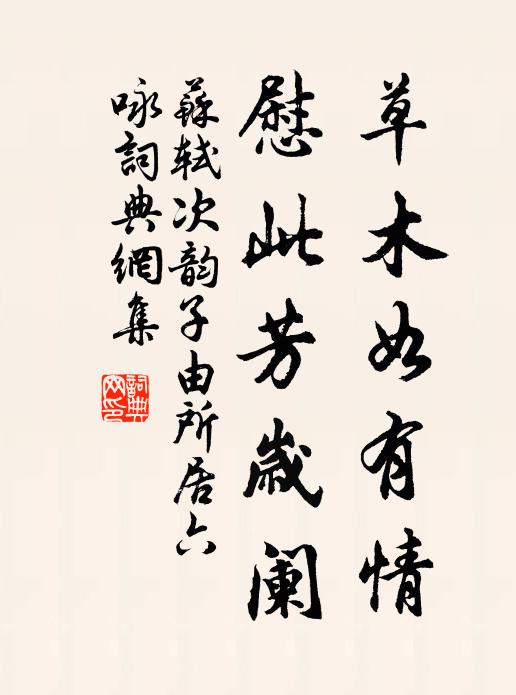 草木如有情
慰此芳歲阑
蘇軾次韵子由所居六
咏詞典網集
詞典网印